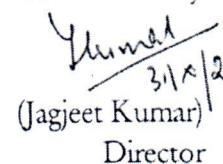 Jkumar
31/x/2
(Jagjeet Kumar)
Director